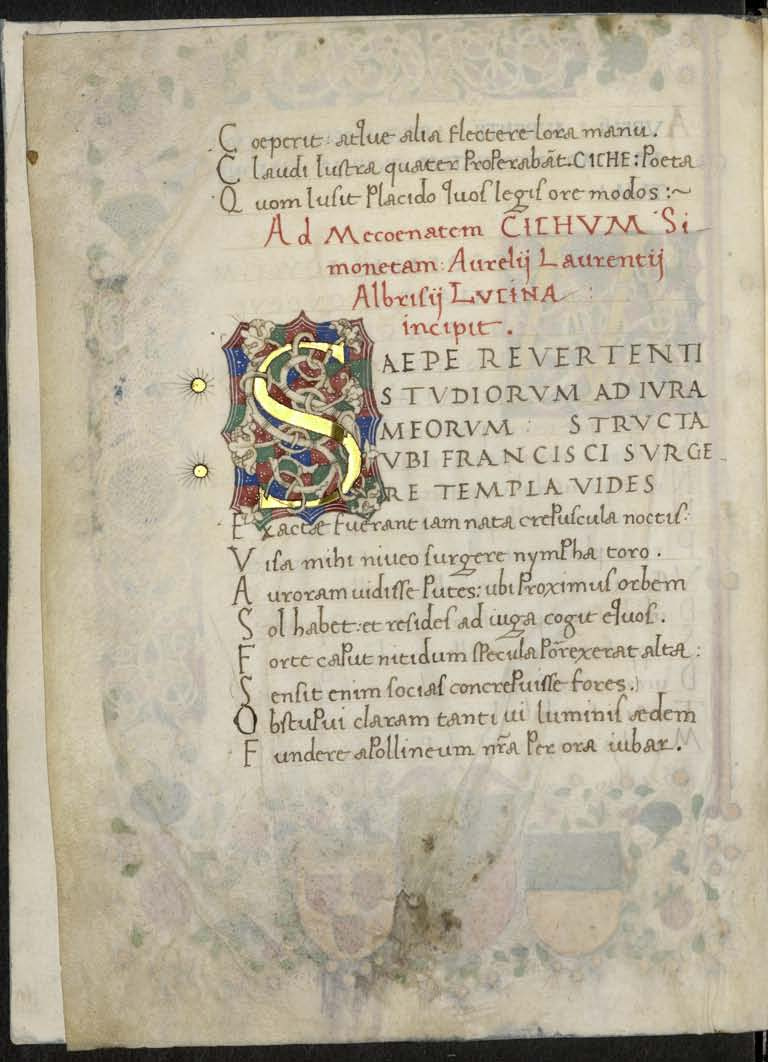 Coeperit: atque alia flectere lora manu.
Claudi lustra quater properabāt. CICHE: Poeta
Quom lusit Placido quos legis ore modos :~
Ad Mecoenatem CICHVM Si
monetam: Aurelij Laurentij
Albrisij LVCINA :
incipit.
SAEPE REVERTENTI
STVDIORVM AD IVRA
MEORVM : STRVCTA
VBI FRANCISCI SVRGE
RE TEMPLA VIDES
Exactae fuerant iam nata crepuscula noctis:
Visa mihi niueo surgere nympha toro.
Auroram uidisse putes: ubi proximus orbem
Sol habet: et resides ad iuga cogit equos.
Forte caput nitidum specula porrexerat alta:
Sensit enim socias concrepuisse fores.
Obstupui claram tanti ui luminis aedem
Fundere apollineum nr̄a per ora iubar.